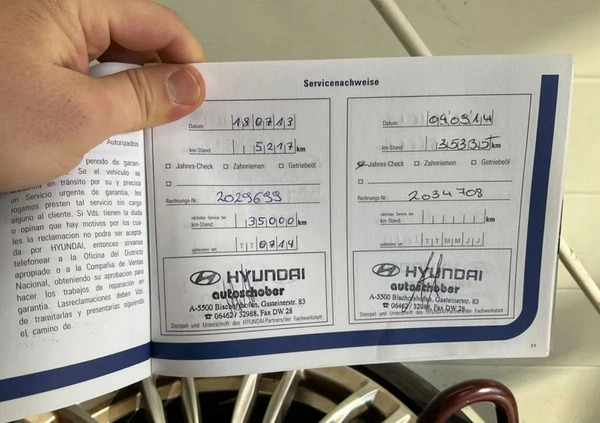 Servicenachweise
Autorizados
periodo de garan-
Se el vehiculo se
en tránsito por su y precisa
un Servicio urgente de garantia, les
rogamos presten tal servicio sin cargo
alguno al cliente. Si Vds. tienen la duda
o opinan que hay motivos por los cua-
les la reclamacion no podra ser acepta-
da por HYUNDAI, entonces sirvanse
telefonear a la Oficina del District
apropiado o a la Compañia de Ventas
Nacional, obteniendo su aprobacion para
hacer los trabajos de reparación en
garantia. Lasreclamaciones deben
de tramitarlas y presentarlas siguiendo
el camino de.
Datum: 180713
km-Stand: 5217 km
Jahres-Check Zahnriemen Getriebeöl
Rechnungs-Nr.: 2029699
nächstes Service bei
km-Stand: 35000 km
spätestens am TT 0714
HYUNDAI
autoschober
A-5500 Bischofshofen, Gasteinerstr. 83
☎ 06462/32988, Fax DW 28
Stempel und Unterschrift des HYUNDAI-Partners/der Fachwerkstatt
Datum: 040914
km-Stand: km
Jahres-Check Zahnriemen Getriebeöl
Rechnungs-Nr.: 2034708
nächstes Service bei
km-Stand: km
spätestens am TTMMJJ
HYUNDAI
autoschober
A-5500 Bischofshofen, Gasteinerstr. 83
☎ 06462/32988, Fax DW 28
Stempel und Unterschrift des HYUNDAI-Partners/der Fachwerkstatt
33